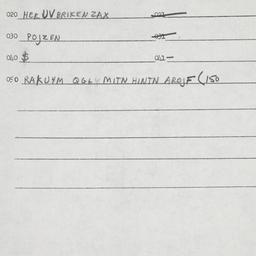 020 HER UV BRIKEN ZAX 021
030 POJZEN 031
040 $ 041 -
050 RAKUYM QGL MITN HINTN AROJF (150